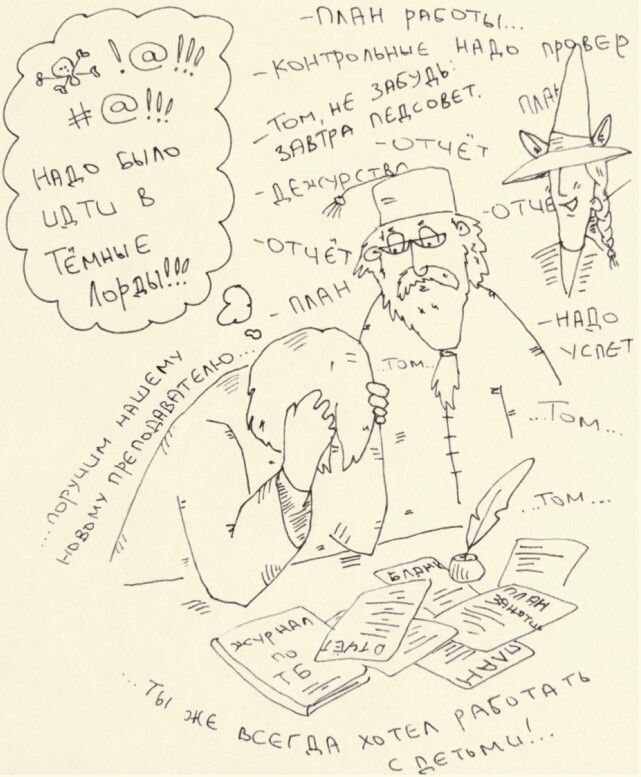 !@!!!
#@!!!
НАДО БЫЛО
ИДТИ В
ТЁМНЫЕ
ЛОРДЫ!!!
-ПЛАН РАБОТЫ...
-КОНТРОЛЬНЫЕ НАДО ПРОВЕР
-ТОМ, НЕ ЗАБУДЬ:
ЗАВТРА ПЕДСОВЕТ.
ПЛАН
-ОТЧЁТ
-ДЕЖУРСТВО
-ОТЧЁ
-ОТЧЁТ
-ПЛАН
-НАДО
УСПЕТ
...ТОМ...
...ТОМ...
...ТОМ...
...ПОРУЧИМ НАШЕМУ
НОВОМУ ПРЕПОДАВАТЕЛЮ...
БЛАНК
ЖУРНАЛ
ПО
ОТЧЁТ
ПЛАН
...ТЫ ЖЕ ВСЕГДА ХОТЕЛ РАБОТАТЬ
С ДЕТЬМИ!...